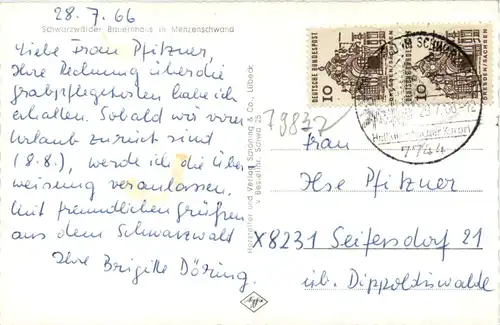 28.7.66
Schwarzwälder Bauernhaus in Menzenschwand
Liebe Frau Pfitzner,
Ihre Rechnung über die
grabpflegekosten habe ich
erhalten. Sobald wir vom
Urlaub zurück sind
(8.8.), werde ich die Über
weisung veranlassen.
Mit freundlichen Grüßen
aus dem Schwarzwald
Ihre Brigitte Döring.
Hersteller und Verlag Schöning & Co., Lübeck
Bestellnr. Schwa 25
79832
DEUTSCHE BUNDESPOST
10
DRESDEN/SACHSEN
DEUTSCHE BUNDESPOST
10
DRESDEN/SACHSEN
7744
Frau
Ilse Pfitzner
X8231 Seifersdorf 21
üb. Dippoldiswalde